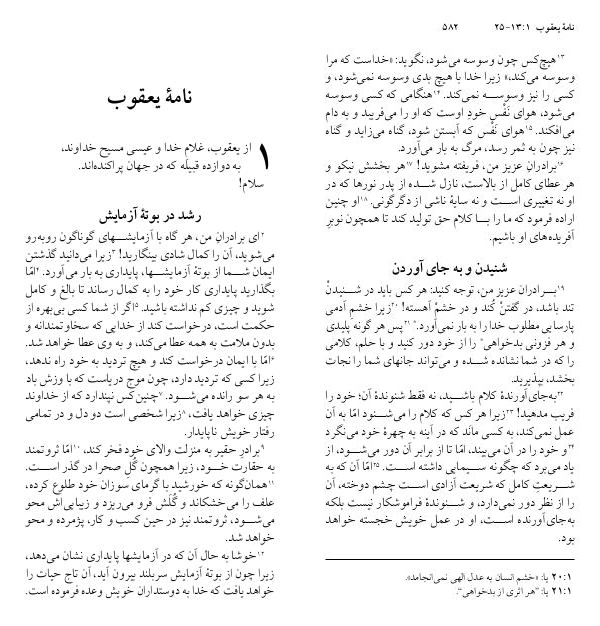 نامهٔ یعقوب
۱ از یعقوب، غلامِ خدا و عیسی مسیح خداوند،
به دوازده قبیله که در جهان پراکنده‌اند.
سلام!
رشد در بوتهٔ آزمایش
۲ای برادرانِ من، هر گاه با آزمایشهای گوناگون روبه‌رو
می‌شوید، آن را کمال شادی بینگارید! ۳زیرا می‌دانید گذشتن
ایمان شما از بوتهٔ آزمایشها، پایداری به بار می‌آورد. ۴امّا
بگذارید پایداری کار خود را به کمال رساند تا بالغ و کامل
شوید و چیزی کم نداشته باشید. ۵اگر از شما کسی بی‌بهره از
حکمت است، درخواست کند از خدایی که سخاوتمندانه و
بدون ملامت به همه عطا می‌کند، و به وی عطا خواهد شد.
۶امّا با ایمان درخواست کند و هیچ تردید به خود راه ندهد،
زیرا کسی که تردید دارد، چون موج دریاست که با وزش باد
به هر سو رانده می‌شود. ۷چنین‌کس نپندارد که از خداوند
چیزی خواهد یافت، ۸زیرا شخصی است دو دل و در تمامی
رفتار خویش ناپایدار.
۹برادرِ حقیر به منزلت والای خود فخر کند، ۱۰امّا ثروتمند
به حقارت خود، زیرا همچون گُلِ صحرا در گذر است.
۱۱همان‌گونه که خورشید با گرمای سوزان خود طلوع کرده،
علف را می‌خشکاند و گُلَش فرو می‌ریزد و زیبایی‌اش محو
می‌شود، ثروتمند نیز در حین کسب و کار، پژمرده و محو
خواهد شد.
۱۲خوشا به حال آن که در آزمایشها پایداری نشان می‌دهد،
زیرا چون از بوتهٔ آزمایش سربلند بیرون آید، آن تاج حیات را
خواهد یافت که خدا به دوستداران خویش وعده فرموده است.
نامهٔ یعقوب ۱:‏۱۳-۲۵ ۵۸۲
۱۳هیچ‌کس چون وسوسه می‌شود، نگوید: «خداست که مرا
وسوسه می‌کند،» زیرا خدا با هیچ بدی وسوسه نمی‌شود، و
کسی را نیز وسوسه نمی‌کند. ۱۴هنگامی که کسی وسوسه
می‌شود، هوای نَفْسِ خودِ اوست که او را می‌فریبد و به دام
می‌افکند. ۱۵هوای نَفْس که آبستن شود، گناه می‌زاید و گناه
نیز چون به ثمر رسد، مرگ به بار می‌آورد.
۱۶برادرانِ عزیزِ من، فریفته مشوید! ۱۷هر بخشش نیکو و
هر عطای کامل از بالاست، نازل شده از پدر نورها که در
او نه تغییری است و نه سایهٔ ناشی از دگرگونی. ۱۸او چنین
اراده فرمود که ما را با کلام حق تولید کند تا همچون نوبرِ
آفریده‌های او باشیم.
شنیدن و به جای آوردن
۱۹برادرانِ عزیزِ من، توجه کنید: هر کس باید در شنیدنْ
تند باشد، در گفتنْ کُند و در خشمْ آهسته! ۲۰زیرا خشمِ آدمی
پارسایی مطلوب خدا را به بار نمی‌آورد.* ۲۱پس هر گونه پلیدی
و هر فزونی بدخواهی* را از خود دور کنید و با حلم، کلامی
را که در شما نشانده شده و می‌تواند جانهای شما را نجات
بخشد، بپذیرید.
۲۲به‌جای‌آورندهٔ کلام باشید، نه فقط شنوندهٔ آن؛ خود را
فریب مدهید! ۲۳زیرا هر کس که کلام را می‌شنود امّا به آن
عمل نمی‌کند، به کسی مانَد که در آینه به چهرهٔ خود می‌نگرد
۲۴و خود را در آن می‌بیند، امّا تا از برابر آن دور می‌شود، از
یاد می‌برد که چگونه سیمایی داشته است. ۲۵امّا آن که به
شریعتِ کامل که شریعت آزادی است چشم دوخته، آن
را از نظر دور نمی‌دارد، و شنوندهٔ فراموشکار نیست بلکه
به‌جای‌آورنده است، او در عمل خویش خجسته خواهد
بود.
۱:‏۲۰ یا: «خشم انسان به عدل الهی نمی‌انجامد».
۱:‏۲۱ یا: ”هر اثری از بدخواهی“.